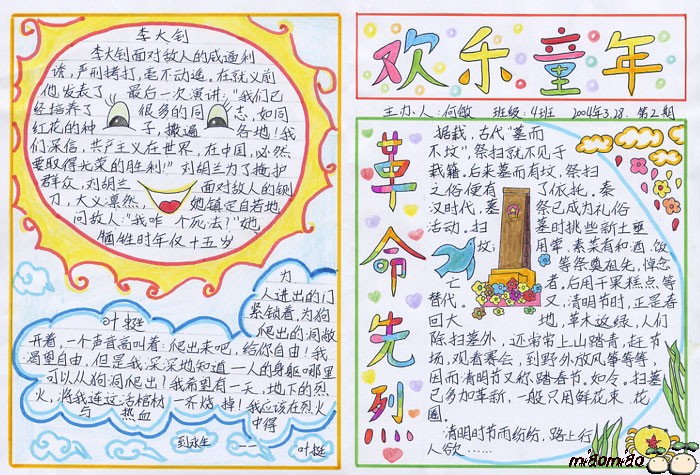 李大钊
李大钊面对敌人的威逼利
诱，严刑拷打，毫不动遥，在就义前
他发表了 最后一次演讲："我们已
经培养了 很多的同 志，如同
红花的种 子，撒遍 各地！我
们深信，共产主义在世界，在中国，必然
要取得光荣的胜利！"刘胡兰为了掩护
群众，刘胡兰 面对敌人的铡
刀，大义凛然， 她镇定自若地
问敌人："我咋 个死法？"她
牺牲时年仅十五岁
为
人进出的门
紧锁着，为狗
叶挺 爬出的洞敞
开着，一个声音高叫着：爬出来吧，给你自由！我
渴望自由，但是我深深地知道一人的身躯哪里
可以从狗洞爬出？我希望有一天，地下的烈
火，将我连这活棺材一齐烧掉！我应该在烈火
与 热血 中得
到永生 —— 叶挺
欢乐童年
主办人：何敏 班级：4班 2004年3.28 第2期
革命先烈
据栽，古代"墓而
不坟"，祭扫就不见于
栽籍。后来墓而有坟，祭扫
之俗便有 了依托。秦
汉时代，墓 祭已成为礼俗
活动。扫 墓时挑些新土垂
坟； 用荤、素菜有和酒、饭
等祭奠祖先，悼念
亡 者，后用干果糕点等
替代。 又，清明节时，正是春
回大 地，草木返绿，人们
除扫墓外，还常常上山踏青，赶节
场，观看赛会，到野外放风筝等等，
因而清明节又称踏春节。如今。扫墓
已多加革新，一般只用鲜花束、花
圈。
清明时节雨纷纷，路上行
人欲……
miāomiāo